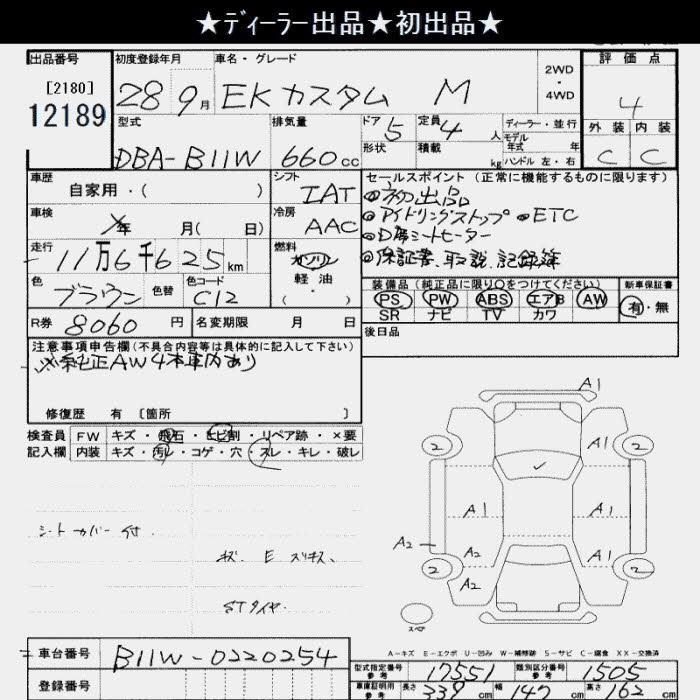 ★ディーラー出品★初出品★
出品番号 初度登録年月 車名・グレード 2WD・4WD 評価点
[2180]
12189 28 9月 EKカスタム M 4
型式 排気量 ドア 定員 ディーラー・並行 外装 内装
DBA-B11W 660cc 5 4人 モデル年式 年 C C
形状 積載 kg ハンドル 左・右
車歴 シフト セールスポイント (正常に機能するものに限ります)
自家用・( ) IAT ◎初出品
車検 年 月( 日) 冷房 AAC ◎アイドリングストップ ◎ETC
走行 11万6千625km 燃料 ガソリン ◎D席シートヒーター
軽油 ・( ) ◎保証書、取説、記録簿
色 ブラウン 色替 色コード C12 装備品 (純正品に限り○をつけてください) 新車保証書
PS PW ABS エアB AW 有・無
SR ナビ TV カワ
R券 8060円 名変期限 月 日 後日品
注意事項申告欄(不具合内容等は具体的に記入して下さい)
※純正AW4本車内あり
修復歴 有 〔箇所 〕
検査員 FW キズ・飛石・ヒビ割・リペア跡・×要
記入欄 内装 キズ・汚レ・コゲ・穴・スレ・キレ・破レ
A1
2 A1 2
A1 A1
A2 A2 A1
2 A2 2
シートカバー付
STタイヤ.
スペア
A−キズ E−エクボ U−凹み W−補修跡 S−サビ C−腐食 XX−交換済
車台番号 B11W-0220254 型式指定番号 参考 17551 類別区分番号 参考 1505
登録番号 車庫証明用 参考 長さ 339cm 幅 147cm 高さ 162cm